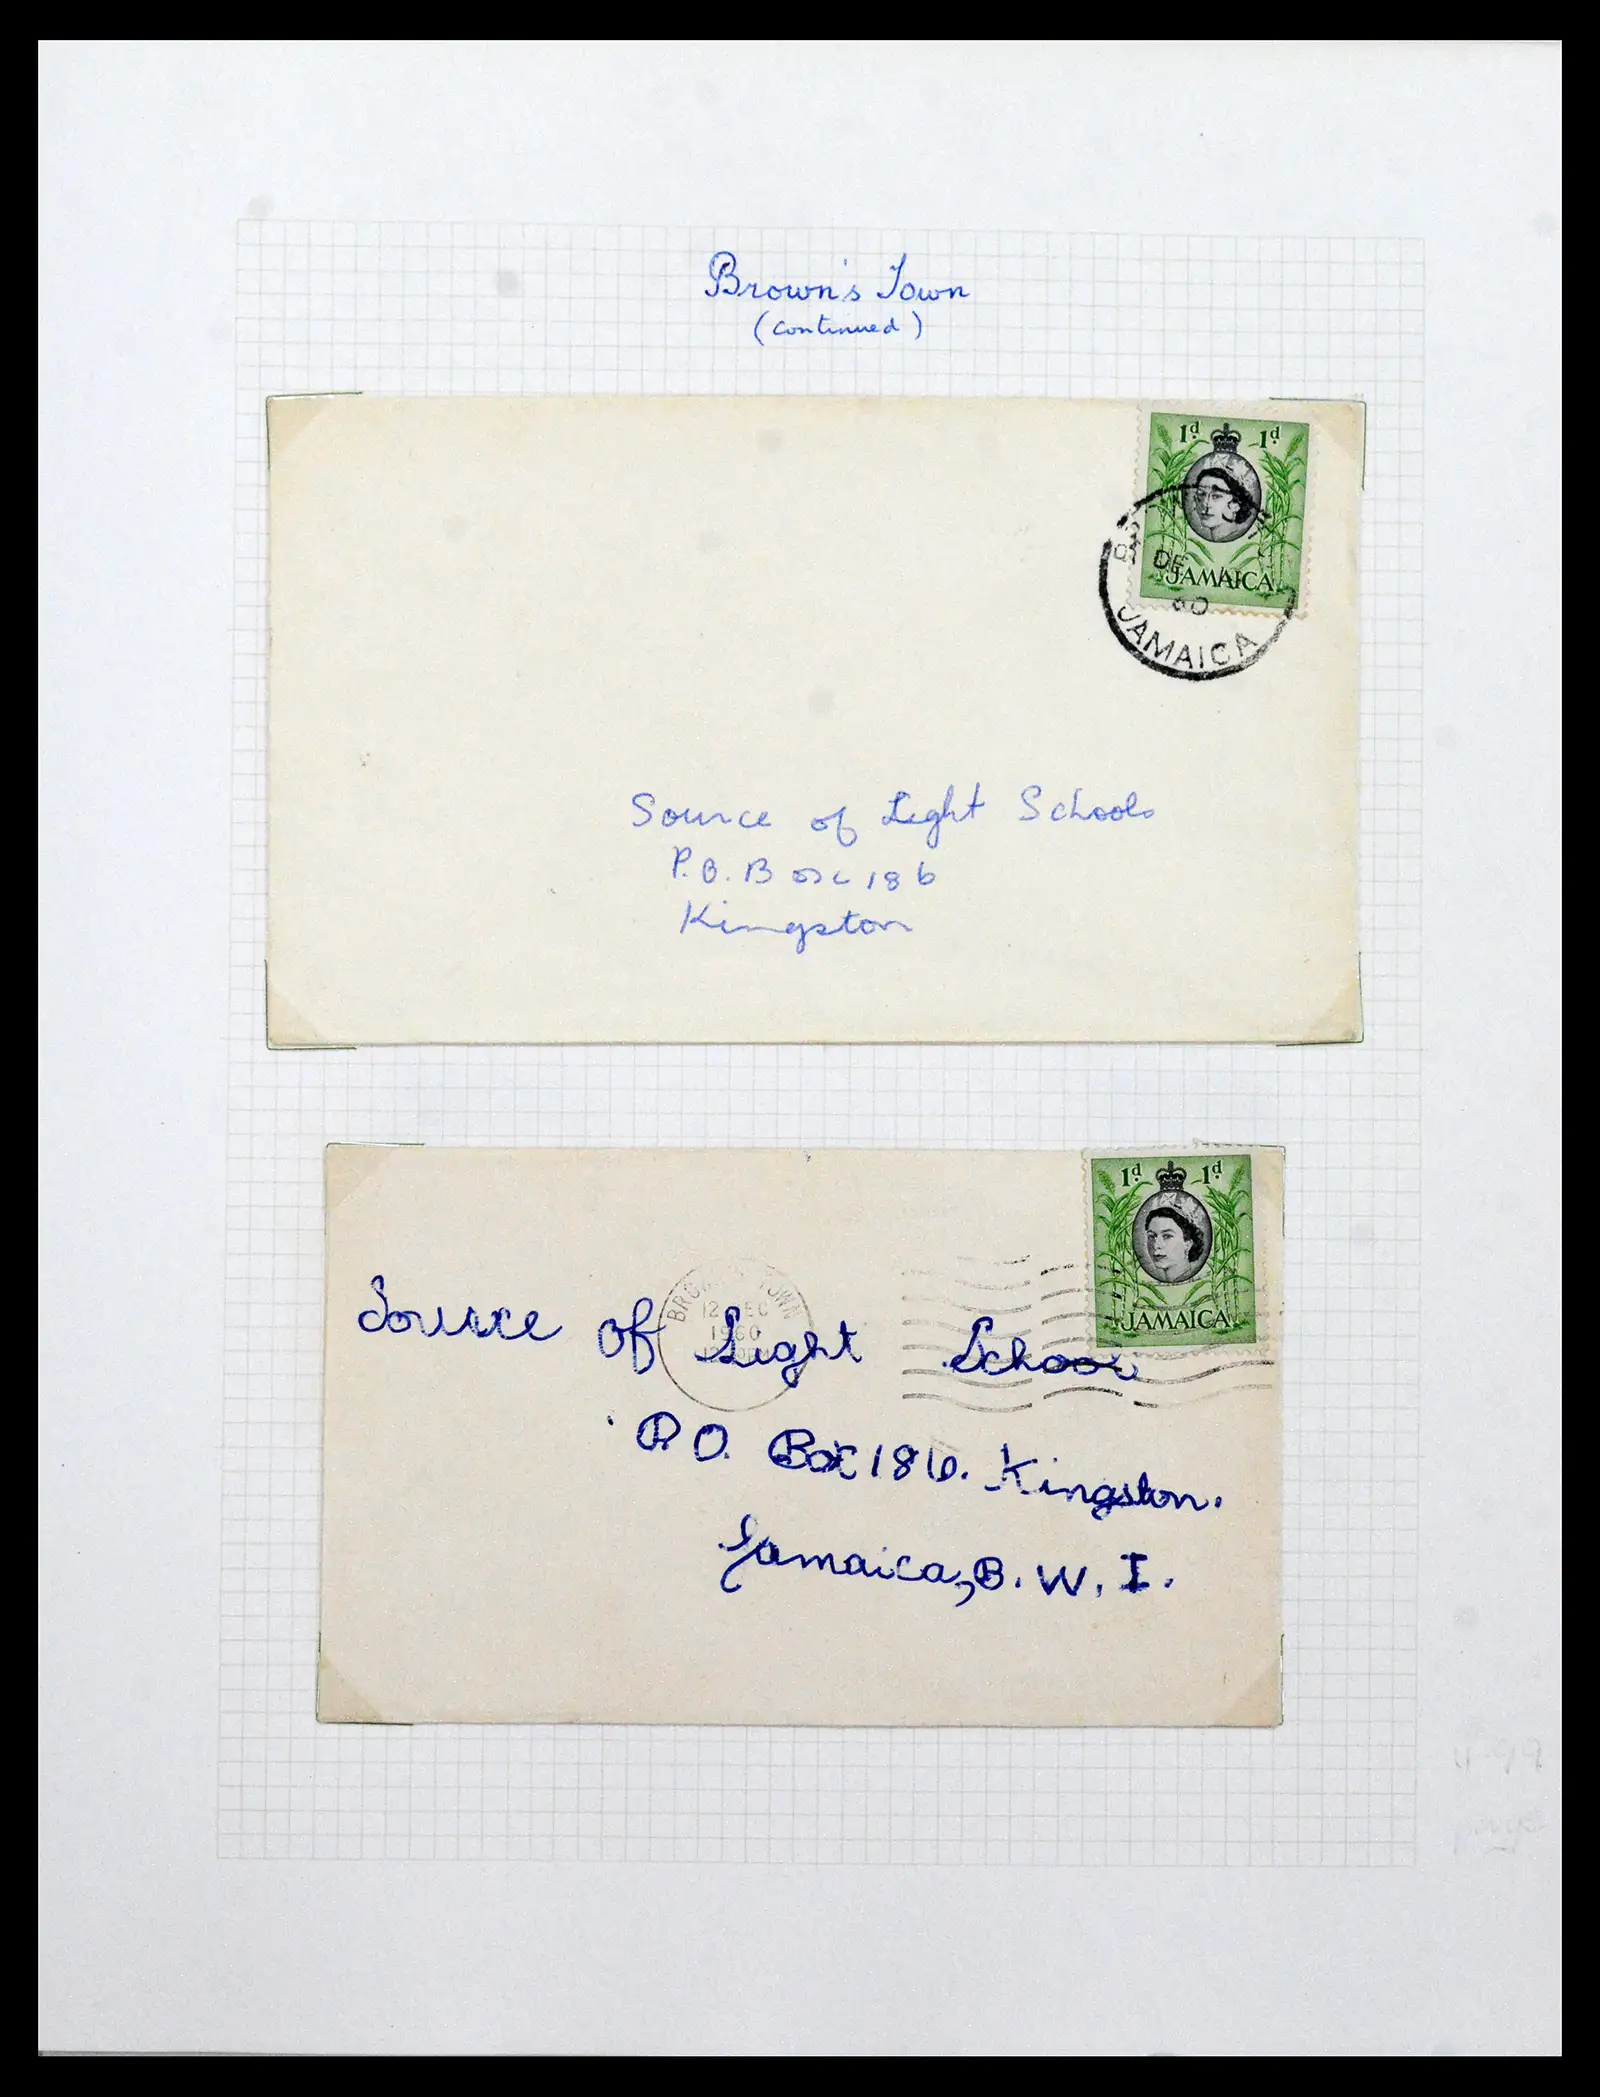 Brown's Town
(continued)
1d 1d
JAMAICA
DE
60
JAMAICA
Source of Light Schools
P.O. Box 186
Kingston
1d 1d
JAMAICA
BROWN'S TOWN
12 DEC
1960
Source of Light School
P.O. Box 186. Kingston.
Jamaica, B. W. I.